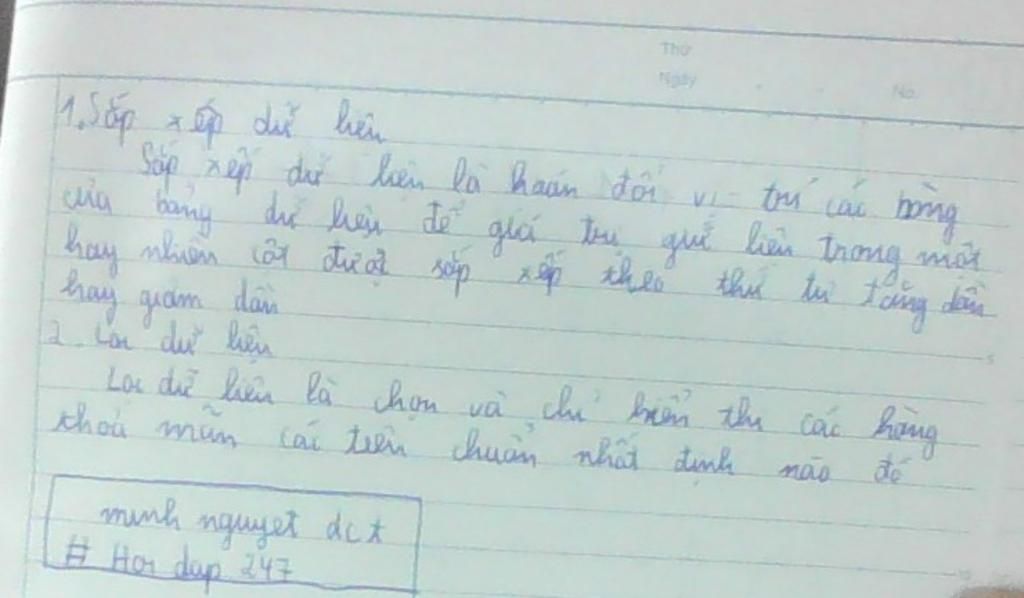 Thứ
Ngày
No.
1. Sắp xếp dữ liệu
Sắp xếp dữ liệu là hoán đổi vị trí các hàng
của bảng dữ liệu để giá trị giữ liệu trong một
hay nhiều cột được sắp xếp theo thứ tự tăng dần
hay giảm dần
2. Lọc dữ liệu
Lọc dữ liệu là chọn và chỉ hiển thị các hàng
thoả mãn các tiêu chuẩn nhất định nào đó
minh nguyet dct
# Hoi dap 247